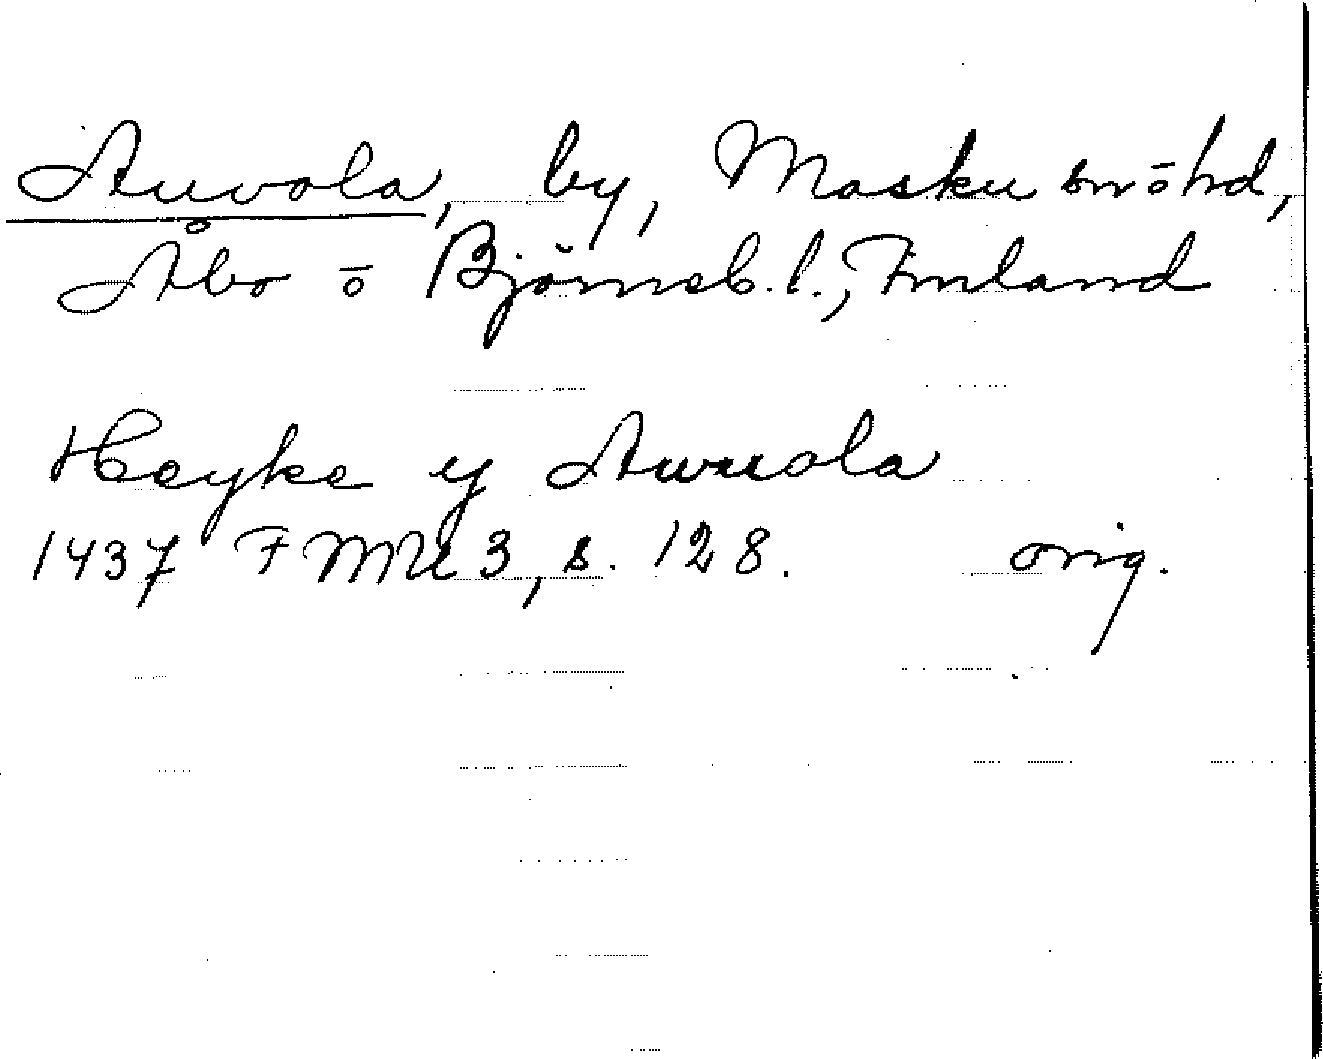 Auvola, by, Masku sn ō hd,
Åbo ō Björneb. l., Finland
Heyke y Awuola
1437 FMU 3, s. 128. orig.